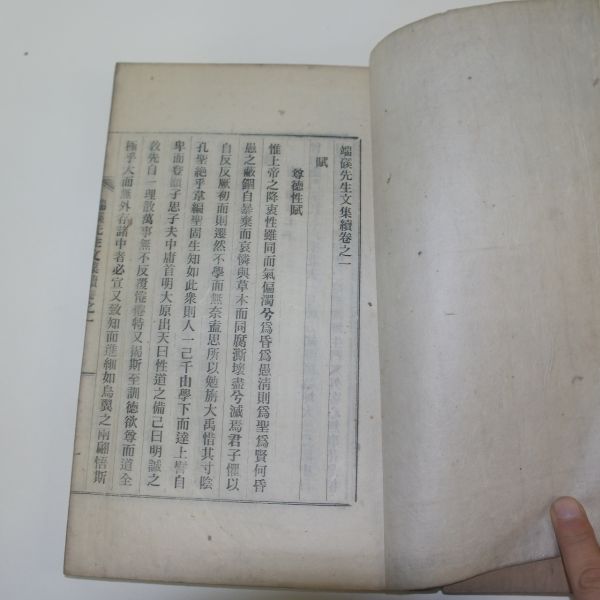 端磎先生文集續卷之一
賦
尊德性賦
惟上帝之降衷性雖同而氣偏濁兮爲昏爲愚淸則爲聖爲賢何昏
愚之蔽錮自暴棄而哀憐與草木而同腐澌壞盡兮滅焉君子懼以
自反反厥初而則還然不學而無奈盍思所以勉旃大禹惜其寸陰
孔聖絶乎韋編聖固生知如此衆則人一己千由學下而達上訾自
卑而 顔子思子夫中庸首明大原出天曰性道之備己曰明誠之
敎先自一理散萬事無不反覆惓惓特又揭斯至訓德欲尊而道全
極乎大而無外存諸中者必宣又致知而進細如鳥翼之兩翩悟斯
先生文集續卷之一